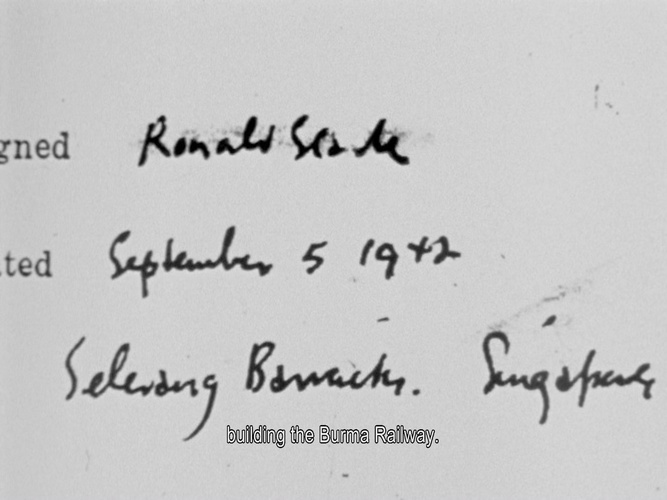 gned Ronald Searle
ted September 5 1942
Selerang Barracks. Singapore
building the Burma Railway.